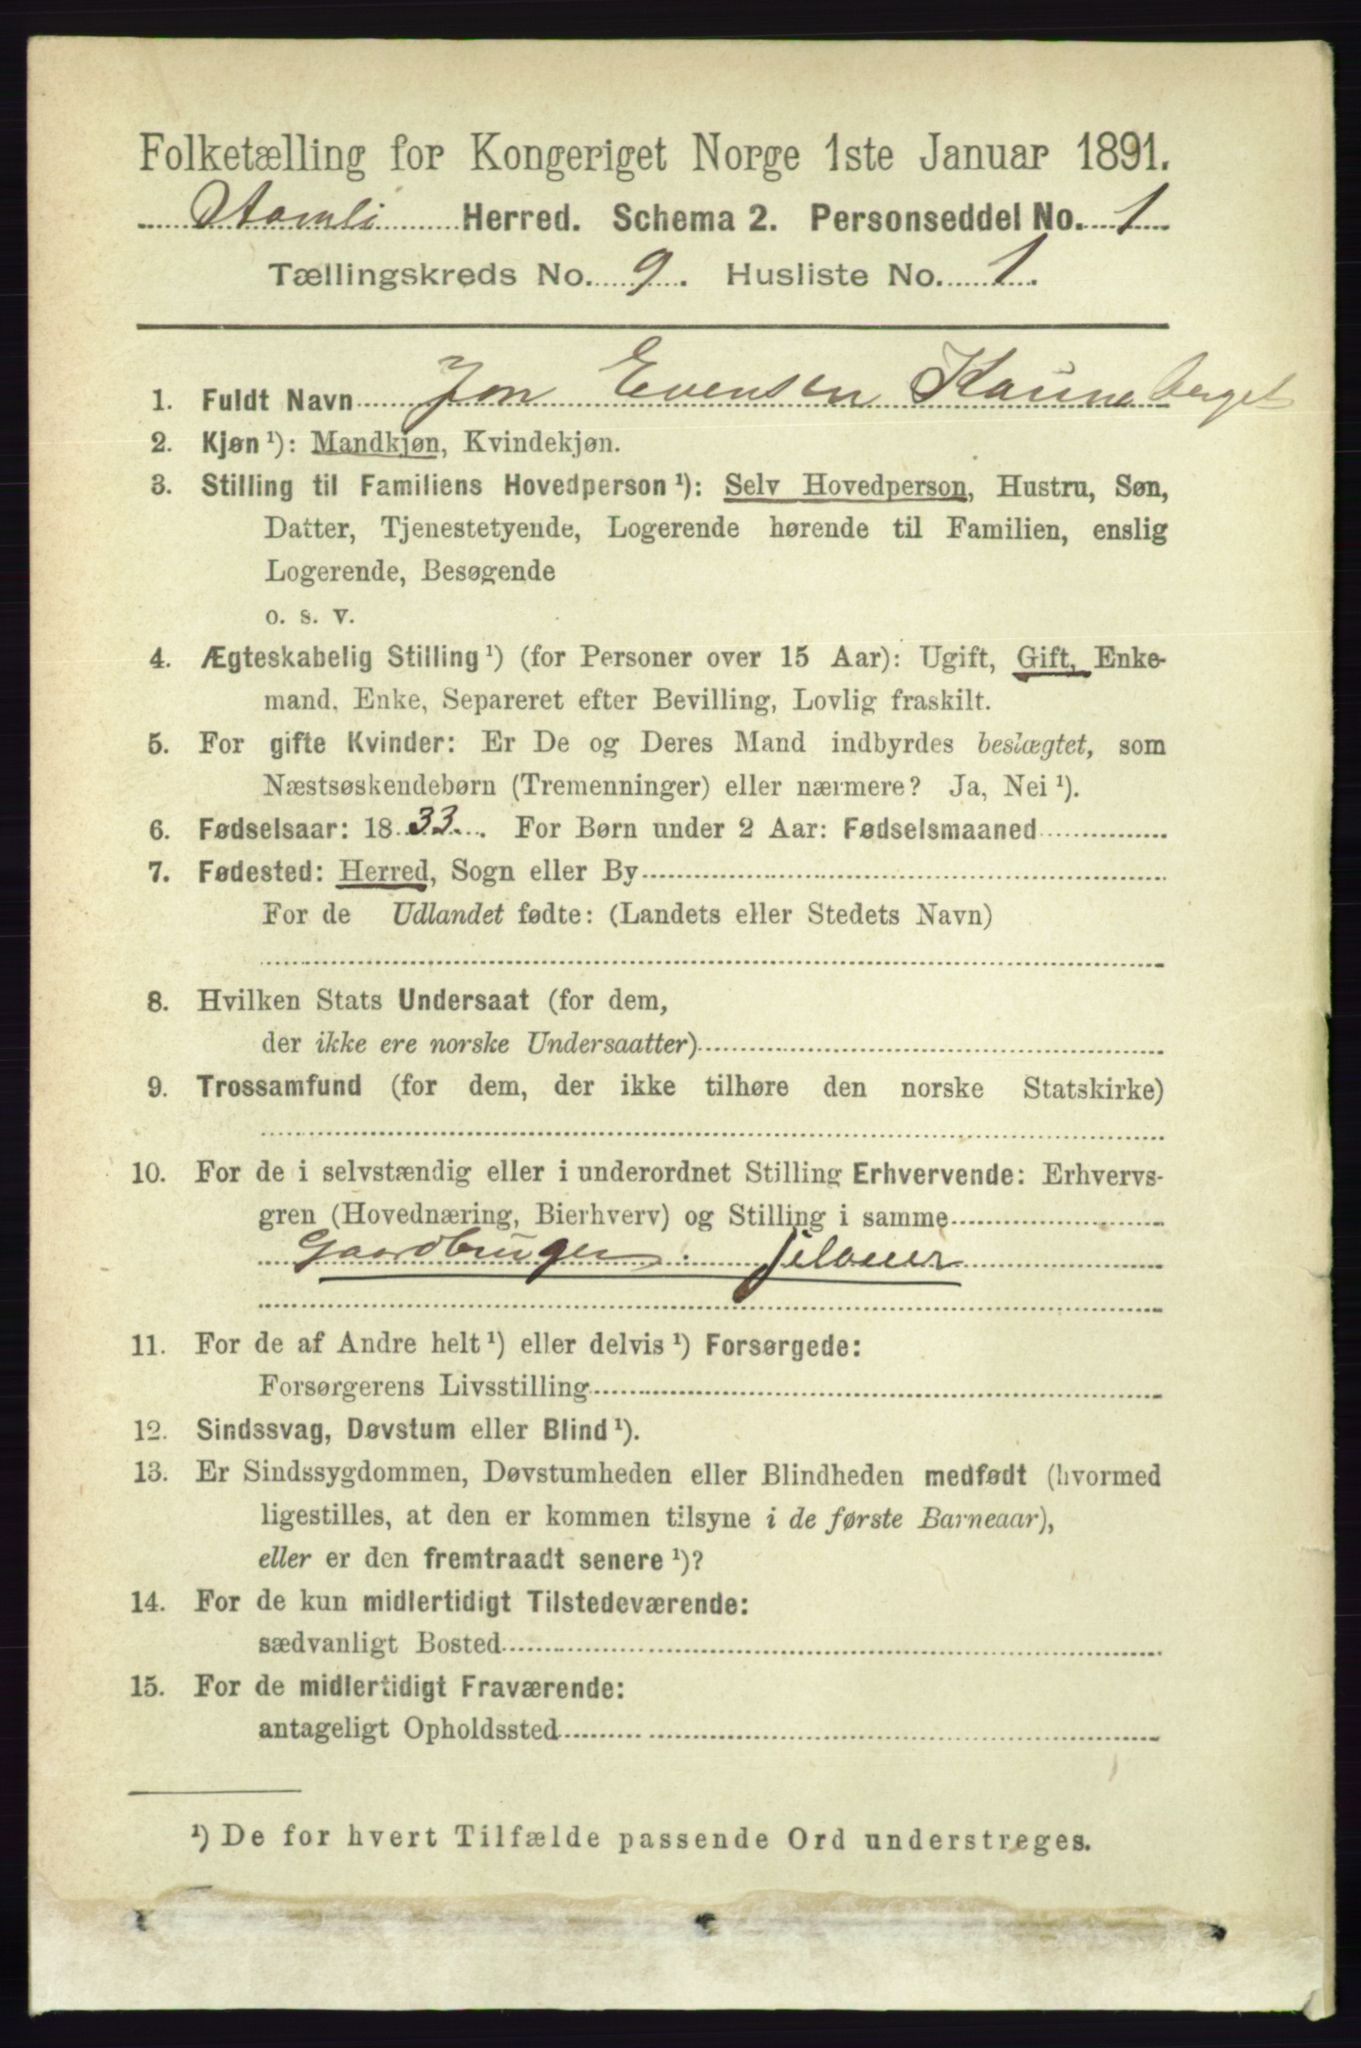 Folketælling for Kongeriget Norge 1ste Januar 1891.
Aamli Herred. Schema 2. Personseddel No. 1
Tællingskreds No. 9. Husliste No. 1.
1. Fuldt Navn Jon Evensen Kauneberget
2. Kjøn ¹): Mandkjøn, Kvindekjøn.
3. Stilling til Familiens Hovedperson ¹): Selv Hovedperson, Hustru, Søn,
Datter, Tjenestetyende, Logerende hørende til Familien, enslig
Logerende, Besøgende
o. s. v.
4. Ægteskabelig Stilling ¹) (for Personer over 15 Aar): Ugift, Gift, Enke-
mand, Enke, Separeret efter Bevilling, Lovlig fraskilt.
5. For gifte Kvinder: Er De og Deres Mand indbyrdes beslægtet, som
Næstsøskendebørn (Tremenninger) eller nærmere? Ja, Nei ¹).
6. Fødselsaar: 1833. For Børn under 2 Aar: Fødselsmaaned
7. Fødested: Herred, Sogn eller By
For de Udlandet fødte: (Landets eller Stedets Navn)
8. Hvilken Stats Undersaat (for dem,
der ikke ere norske Undersaatter)
9. Trossamfund (for dem, der ikke tilhøre den norske Statskirke)
10. For de i selvstændig eller i underordnet Stilling Erhvervende: Erhvervs-
gren (Hovednæring, Bierhverv) og Stilling i samme
Gaardbruger: selveier
11. For de af Andre helt ¹) eller delvis ¹) Forsørgede:
Forsørgerens Livsstilling
12. Sindssvag, Døvstum eller Blind ¹).
13. Er Sindssygdommen, Døvstumheden eller Blindheden medfødt (hvormed
ligestilles, at den er kommen tilsyne i de første Barneaar),
eller er den fremtraadt senere ¹)?
14. For de kun midlertidigt Tilstedeværende:
sædvanligt Bosted
15. For de midlertidigt Fraværende:
antageligt Opholdssted
¹) De for hvert Tilfælde passende Ord understreges.